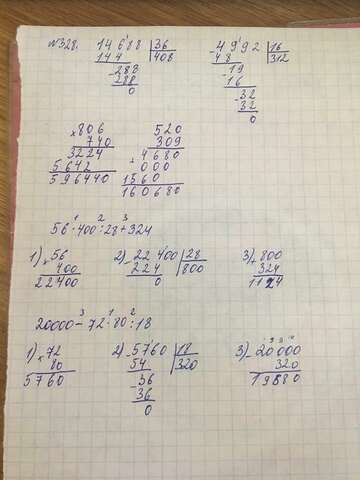 №328. 14688 |36 - 4992 |16
144 408 48 312
- 288 - 19
288 16
0 - 32
32
0
× 806 520
740 309
3224 + 4680
5642 000
596440 1560
160680
56 · 400 : 28 + 324
1 2 3
1) × 56 2) - 22400 |28 3) + 800
400 224 800 324
22400 0 1124
20000 - 72 · 80 : 18
3 1 2
1) × 72 2) - 5760 |18 3) - 20000
80 54 320 320
5760 - 36 19680
36
0